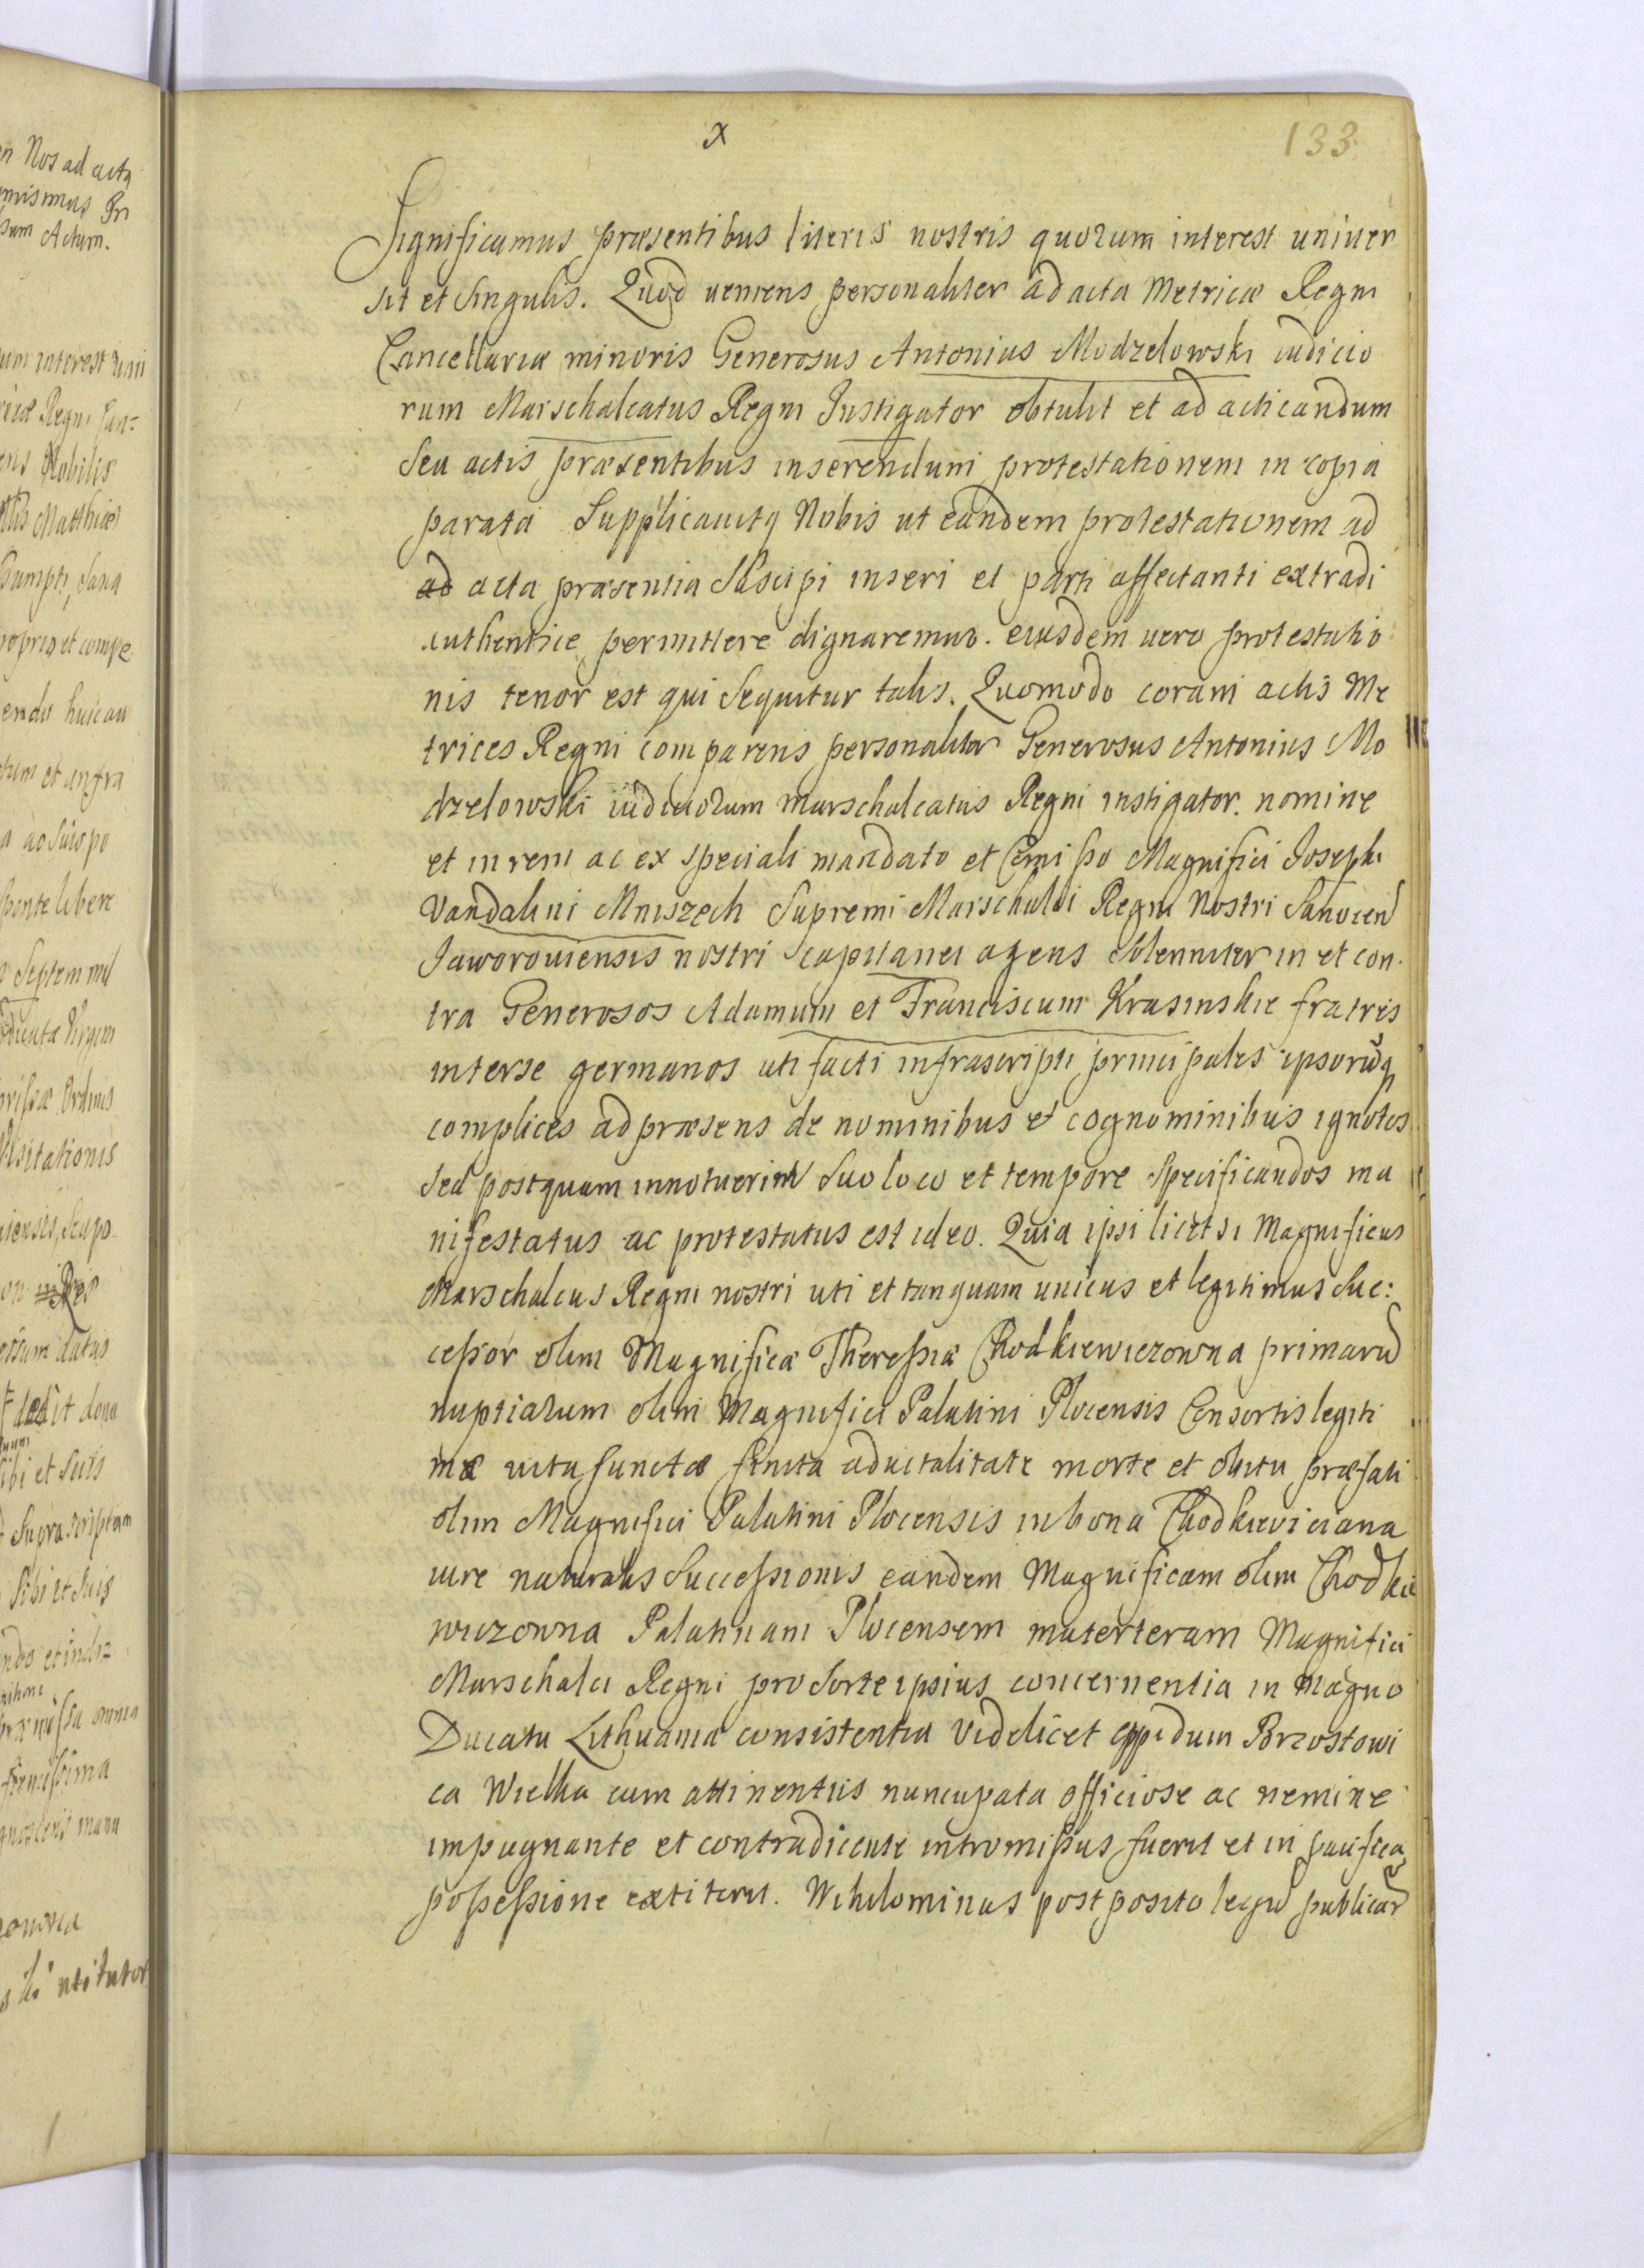 x
133
Significamus præsentibus literis nostris quorum interest univer
sit et Singulis. Quod veniens personaliter ad acta Metricæ Regni
Cancellariæ minoris Generosus Antonius Modzelowski iudicio
rum Marschalcatus Regni Instigator obtulit et ad acticandum
Seu actis præsentibus inserendum protestationem in copia
parata Supplicavitq Nobis ut eandem protestationem ad
ad acta præsentia Suscipi inseri et parti affectanti extradi
authentice permittere dignaremur. eiusdem vero protestatio
nis tenor est qui Sequitur talis. Quomodo coram actis Me
trices Regni comparens personaliter Generosus Antonius Mo
dzelowski iudiciorum marschalcatus Regni instigator. nomine
et in rem ac ex speciali mandato et Comisso Magnifici Josephi
Vandalini Mniszech Supremi Marschalci Regni Nostri Sanocen
Jaworoviensis nostri Capitanei agens Solenniter in et con
tra Generosos Adamum et Franciscum Krasinskie fratres
interse germanos uti facti infrascripti principales ipsorūq
complices ad præsens de nominibus et cognominibus ignotos
Sed postquam innotuerint Suo loco et tempore Specificandos ma
nifestatus ac protestatus est ideo. Quia ipsi licet si Magnificus
Marschalcus Regni nostri uti et tanquam unicus et legitimus Suc:
cessor olim Magnificæ Theressiæ Chodkiewiczowna primarū
nuptiarum olim Magnifici Palatini Plocensis Consortis legiti
mæ vita functæ finita advitalitate morte et obitu præfati
olim Magnifici Palatini Plocensis in bona Chodkieviciana
iure naturalis Successionis eandem Magnificam olim Chodkie
wiczowna Palatinam Plocensem materteram Magnifici
Marschalci Regni pro Sorte ipsius concernentia in Magno
Ducatu Lithuaniæ consistentia videlicet oppidum Brzostowi
ca Wielka cum attinentiis nuncupata officiose ac nemine
impugnante et contradicente intromissus fuerit et in pacifica
possessione extiterit. Nihilominus postposito legū publicarū